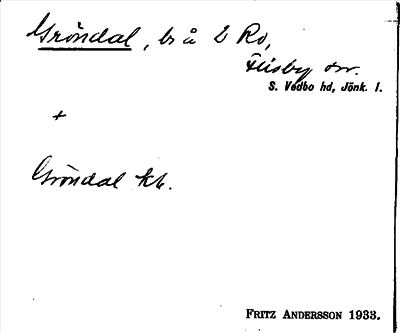 Gröndal, bs å 2 Ro,
Flisby sn.
S. Vedbo hd, Jönk. l.
+
Gröndal kb.
FRITZ ANDERSSON 1933.